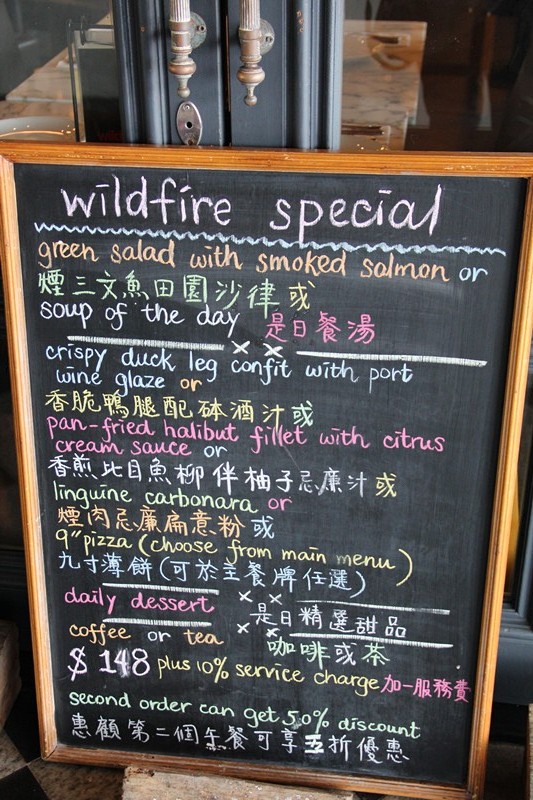 wildfire special
green salad with smoked salmon or
煙三文魚田園沙律 或
soup of the day 是日餐湯
crispy duck leg confit with port
wine glaze or
香脆鴨腿配砵酒汁或
pan-fried halibut fillet with citrus
cream sauce or
香煎比目魚柳伴柚子忌廉汁或
linguine carbonara or
煙肉忌廉扁意粉或
9" pizza (choose from main menu)
九寸薄餅(可於主餐牌任選)
daily dessert 是日精選甜品
coffee or tea 咖啡或茶
$ 148 plus 10% service charge 加一服務費
second order can get 50% discount
惠顧第二個午餐可享五折優惠